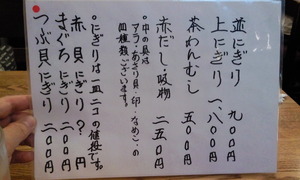 並にぎり 九〇〇円
上にぎり 一、八〇〇円
茶わんむし 五〇〇円
赤だし・吸物 二五〇円
◦中の具は
アラ・あさり貝・卵・なめこ・の
四種類ございます。
◦にぎりは一皿二コの値段です。
赤貝にぎり ? 円
まぐろにぎり 二〇〇円
つぶ貝にぎり 二〇〇円